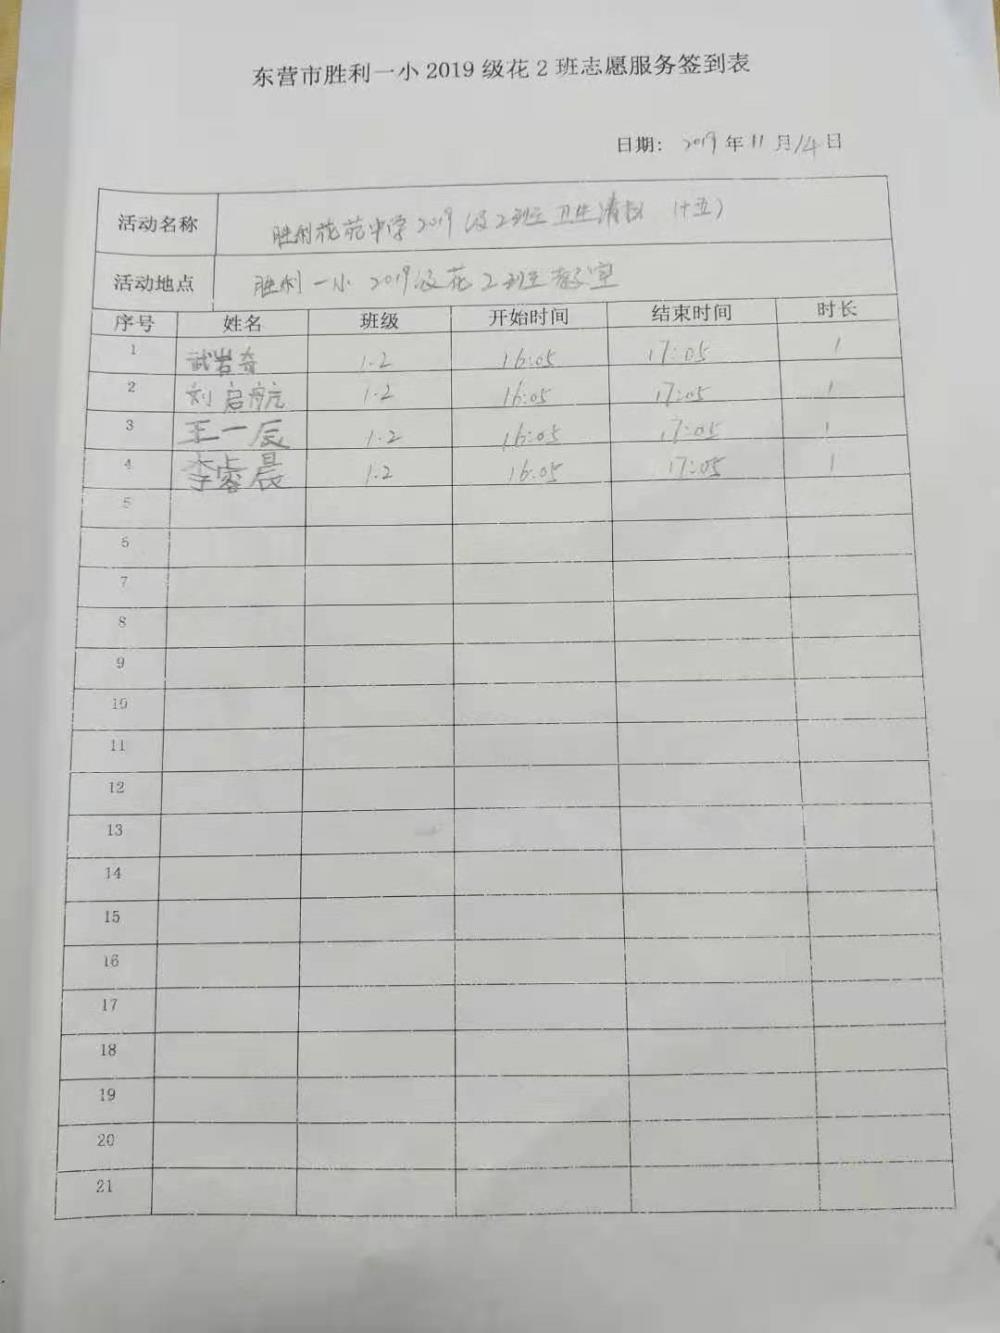 东营市胜利一小2019级花2班志愿服务签到表
日期: 2019年11月14日
活动名称 胜利花苑中学2019级2班卫生清扫 (十五)
活动地点 胜利一小2019级花2班教室
序号 姓名 班级 开始时间 结束时间 时长
1 武岩奇 1.2 16:05 17:05 1
2 刘启航 1.2 16:05 17:05 1
3 王一辰 1.2 16:05 17:05 1
4 李睿晨 1.2 16:05 17:05 1
5
6
7
8
9
10
11
12
13
14
15
16
17
18
19
20
21